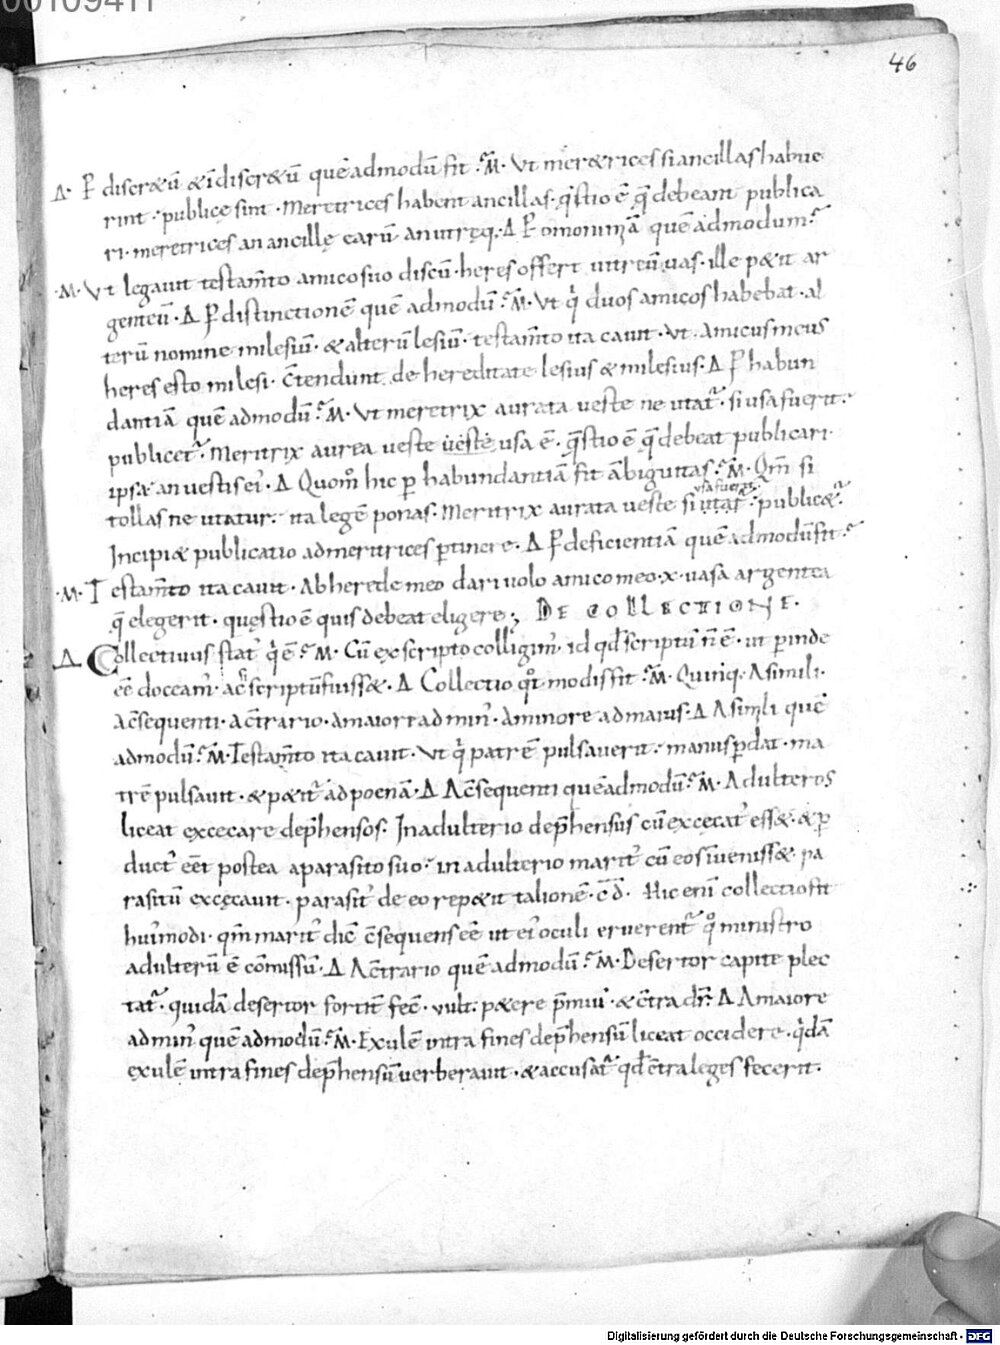 00109411
46
Δ· P discr&ū &īdiscr&ū quēadmodū fit ·M· Vt mer&rices si ancillas habue
rint · publicę sint · Meretrices habent ancillas · q̄stio ē q̄ debeant publica
ri · meretrices an ancillę earū an utręq· Δ P omonimā quē admodum
·M· Vt legavit testam̄to amico suo discū · heres offert vitreū vas · ille p&it ar
genteū · Δ P distinctionē quē admodū ·M· Vt q̇ duos amicos habebat · al
terū nomine milesiū · & alterū lesiū · testam̄to ita cavit · Vt · Amicus meus
heres esto milesi · C̄tendunt de hereditate lesius & milesius · Δ P habun
dantiā quē admodū ·M· Vt meretrix aurata veste ne utat' · si usa fuerit ·
publicet' · Meritrix aurea veste veste usa ē · q̄stio ē q̄ debeat publicari ·
ipsa · an vestis ei' · Δ Quom̊ hic p habundantiā fit ābiguitas ·M· Qm̄ si
usa fuerit
tollas ne utatur · ita legē ponas · Meritrix aurata veste si utat' · public&'
Incipi& publicatio ad meritrices p̄tinere · Δ P deficientiā quē admodū fit ·
·M· Testam̄to ita cavit · Ab herede meo dari volo amico meo ·x· vasa argentea
q̄ elegerit · quęstio ē quis debeat eligere ; DE COLLECTIONE ·
Δ Collectivus stat' q̇ ē ·M· Cū ex scripto colligim' · id qd̄ scriptū n̄ ē · ut perinde
eē doceam' · ac̓ scriptū fuiss& · Δ Collectio qo̊t modis fit ·M· Quinq· A simili ·
A c̄sequenti · A c̄trario · a maiore ad min' · A minore ad maius · Δ A simili quē
admodū ·M· Testam̄to ita cavit · Vt q̇ patrē pulsaverit · manus p̄dat · ma
trē pulsavit · & p&it' ad poenā · Δ A c̄sequenti quēadmodū ·M· Adulteros
liceat excecare dep̄hensos · In adulterio dep̄hensus cū excęcat' ess& · & p
duct' eēt postea a parasito suo · in adulterio marit' cū eos īveniss& · pa
rasitū excęcavit · parasit' de eo rep&it talionē · c̄d̄ · Hic enī collectio fit
hui'modi · qm̄ marit' dic̄ c̄sequens eē ut ei' oculi eruerent' q̊ ministro
adulterū ē cōmissū · Δ A c̄trario quē admodū ·M· Desertor capite plec
tat' · quidā desertor fortit' fec̄ · vult p&ere p̄miū · & c̄tra dr̄ · Δ A maiore
ad min' quē admodū ·M· Exulē intra fines dep̄hensū liceat occidere · q̇dā
exulē intra fines dep̄hensū verberavit · & accusat' qd̄ c̄tra leges fecerit ·
Digitalisierung gefördert durch die Deutsche Forschungsgemeinschaft - DFG